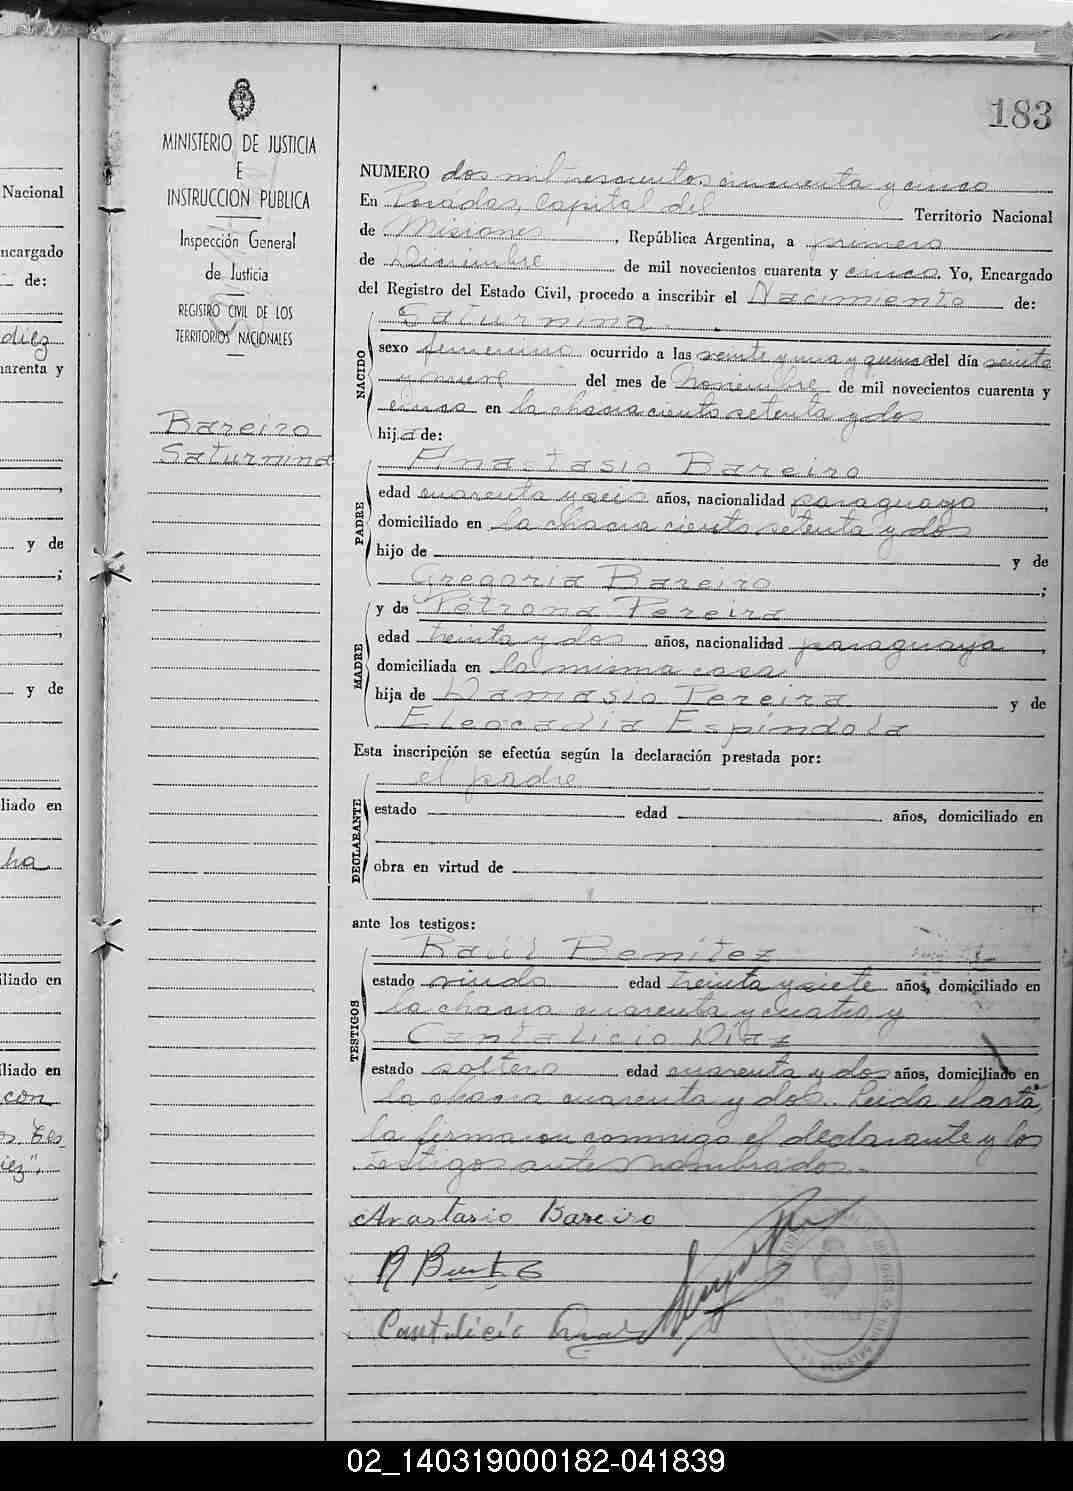 183
MINISTERIO DE JUSTICIA
E
INSTRUCCION PUBLICA
Inspección General
de Justicia
REGISTRO CIVIL DE LOS
TERRITORIOS NACIONALES
Bareiro
Saturnina
NUMERO dos mil trescientos cincuenta y cinco
En Posadas, Capital del Territorio Nacional
de Misiones, República Argentina, a primero
de Diciembre de mil novecientos cuarenta y cinco. Yo, Encargado
del Registro del Estado Civil, procedo a inscribir el Nacimiento de:
Saturnina.
NACIDO
sexo femenino ocurrido a las veinte y una y quince del día veinte
y nueve del mes de Noviembre de mil novecientos cuarenta y
cinco en la chacra ciento setenta y dos
hija de:
Anastasio Bareiro
PADRE
edad cuarenta y seis años, nacionalidad paraguayo,
domiciliado en la chacra ciento setenta y dos
hijo de y de
Gregoria Bareiro;
MADRE
y de Petrona Pereira
edad treinta y dos años, nacionalidad paraguaya,
domiciliada en la misma casa
hija de Damasio Pereira y de
Eleocadia Espíndola
Esta inscripción se efectúa según la declaración prestada por:
el padre
DECLARANTE
estado edad años, domiciliado en
obra en virtud de
ante los testigos:
Raúl Benítez
TESTIGOS
estado viudo edad treinta y siete años, domiciliado en
la chacra cuarenta y cuatro y
Cantalicio Diaz
estado soltero edad cuarenta y dos años, domiciliado en
la chacra cuarenta y dos. Leida el acta,
la firmaron conmigo el declarante y los
testigos antes nombrados.
Anastasio Bareiro
Cantalicio
Nacional
ncargado
de:
diez
arenta y
y de
;
y de
liado en
cha
iliado en
iliado en
con
02_140319000182-041839